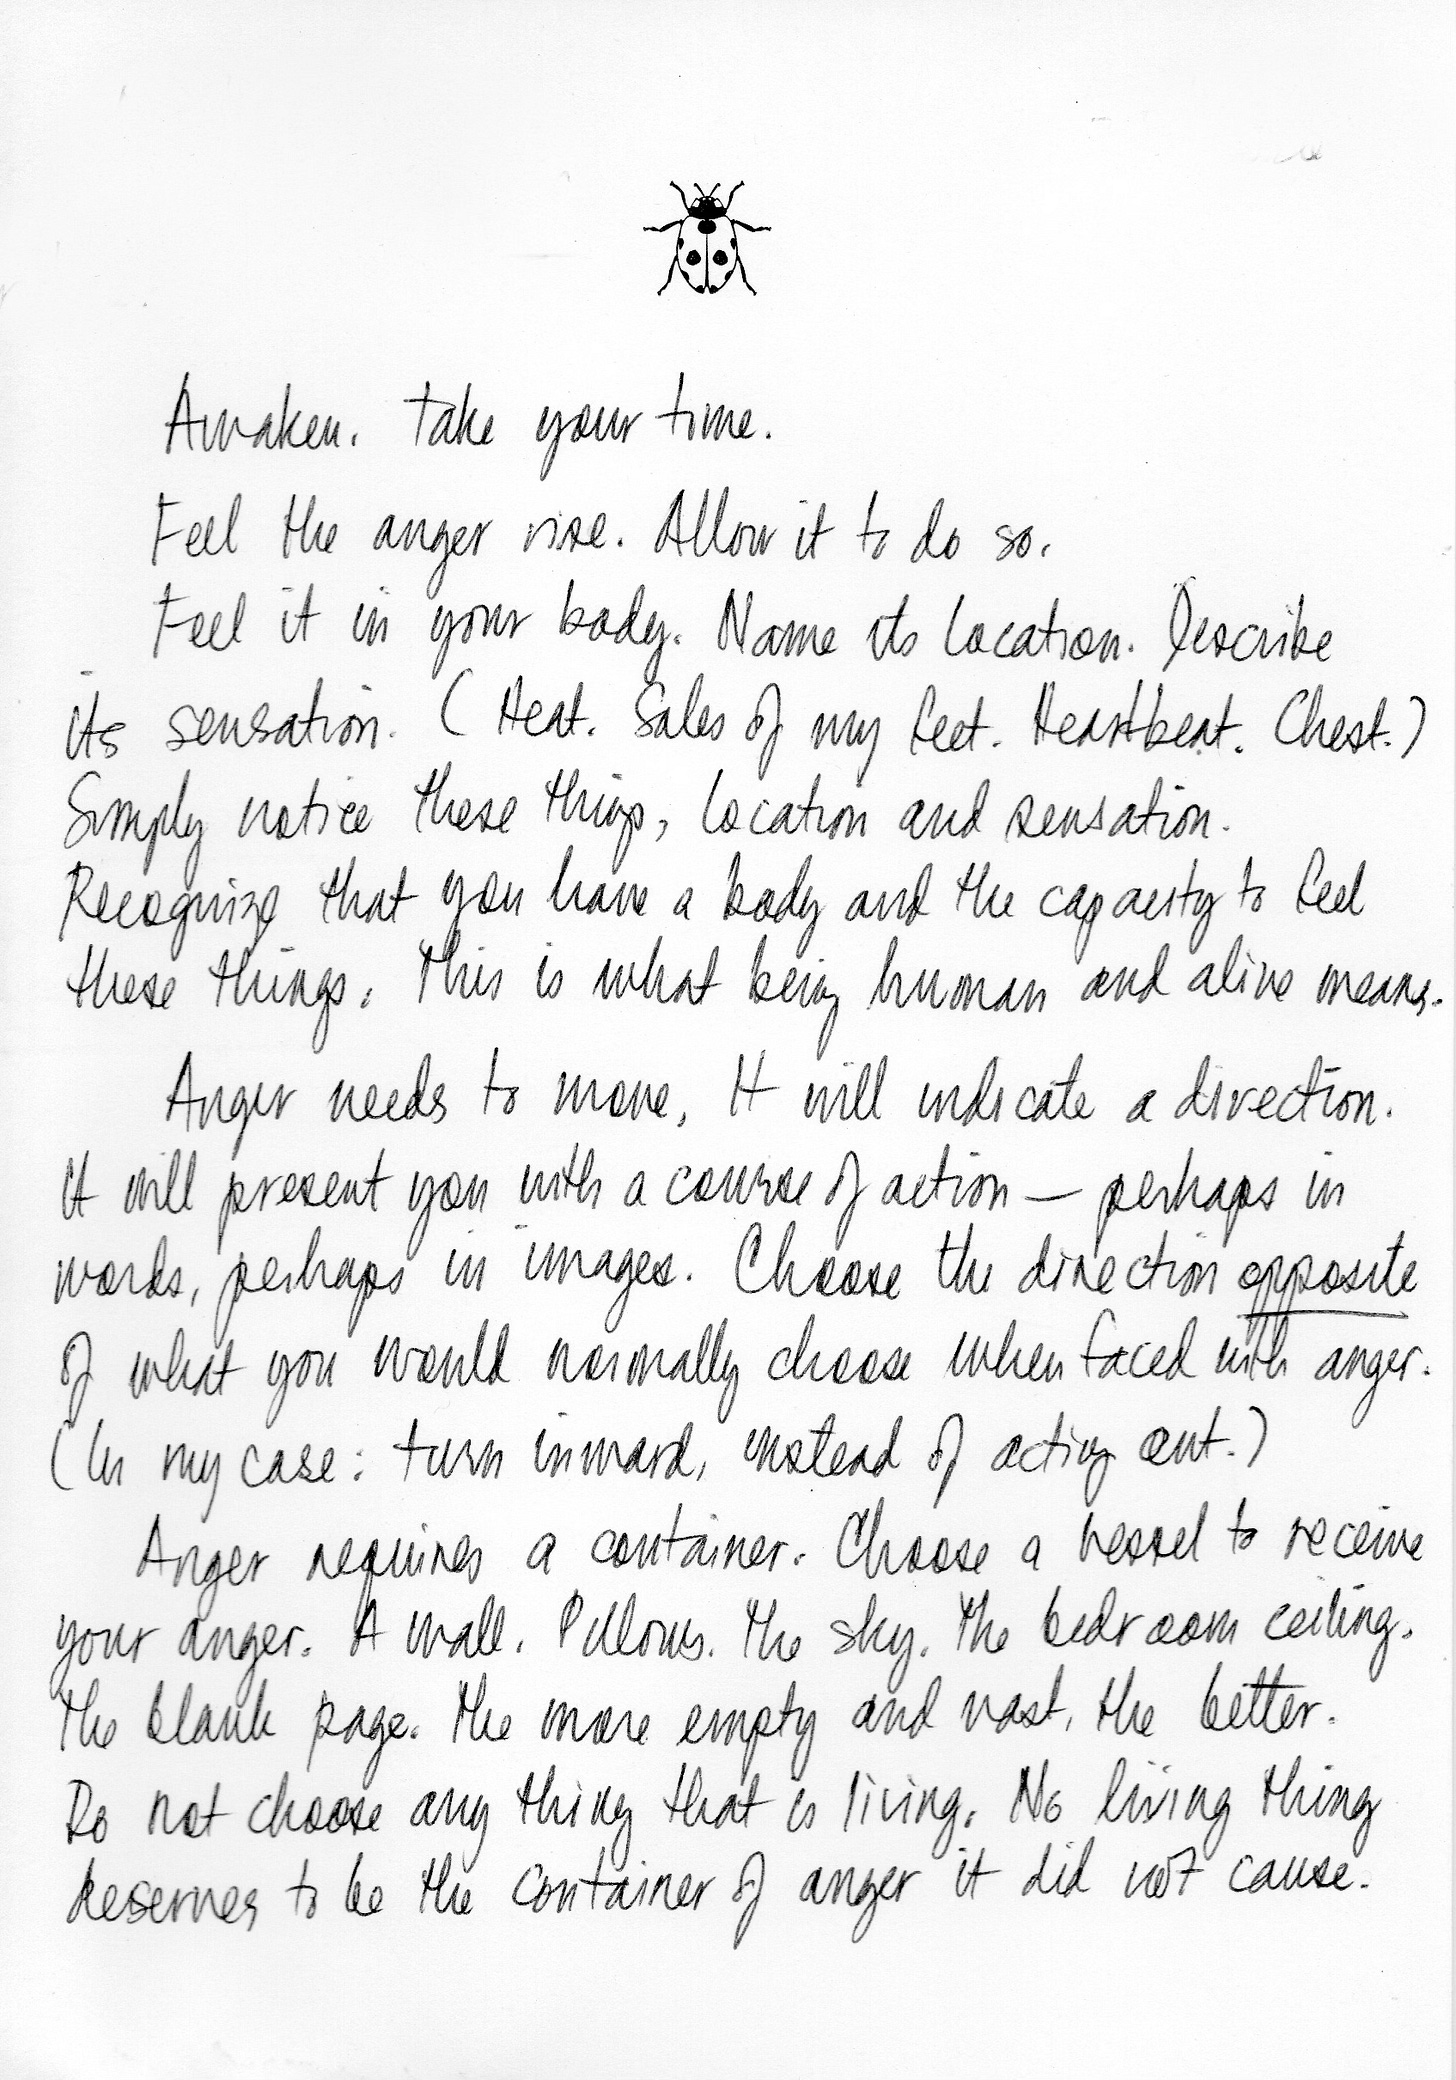 Awaken. Take your time.
Feel the anger rise. Allow it to do so.
Feel it in your body. Name its location. Describe
its sensation. (Heat. Soles of my feet. Heartbeat. Chest.)
Simply notice these things, location and sensation.
Recognize that you have a body and the capacity to feel
these things. This is what being human and alive means.
Anger needs to move. It will indicate a direction.
It will present you with a course of action — perhaps in
words, perhaps in images. Choose the direction opposite
of what you would normally choose when faced with anger.
(In my case: turn inward, instead of acting out.)
Anger requires a container. Choose a vessel to receive
your anger. A wall. Pillows. The sky. The bedroom ceiling.
The blank page. The more empty and vast, the better.
Do not choose any thing that is living. No living thing
deserves to be the container of anger it did not cause.